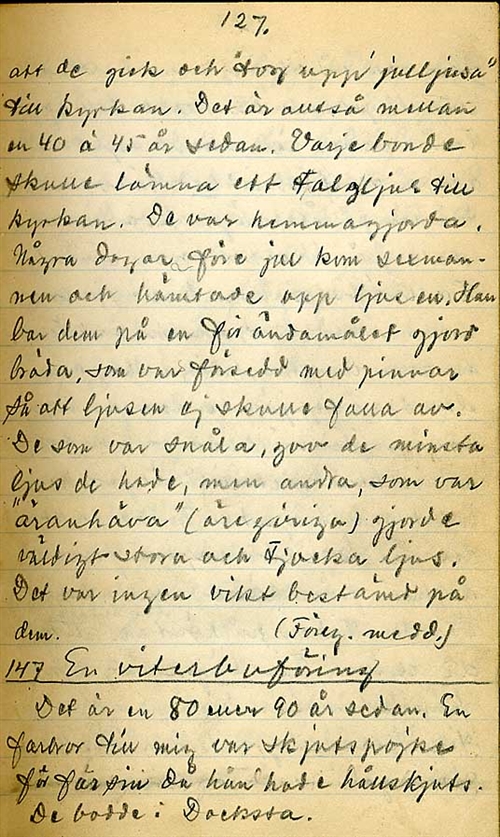 127.
att de gick och "tog upp julljusa"
till kyrkan. Det är alltså mellan
en 40 à 45 år sedan. Varje bonde
skulle lämna ett talgljus till
kyrkan. De var hemmagjorda.
Några dagar före jul kom sexman-
nen och hämtade upp ljusen. Han
bar dem på en för ändamålet gjord
bräda, som var försedd med pinnar
så att ljusen ej skulle falla av.
De som var snåla, gav de minsta
ljus de hade, men andra, som var
"äranhäva" (äregiriga) gjorde
väldigt stora och tjocka ljus.
Det var ingen vikt bestämd på
dem. (Föreg. medd.)
147 En viterbuföring
Det är en 80 eller 90 år sedan. En
farbror till mig var skjutspojke
för far sin då han hade hållskjuts.
De bodde i Docksta.